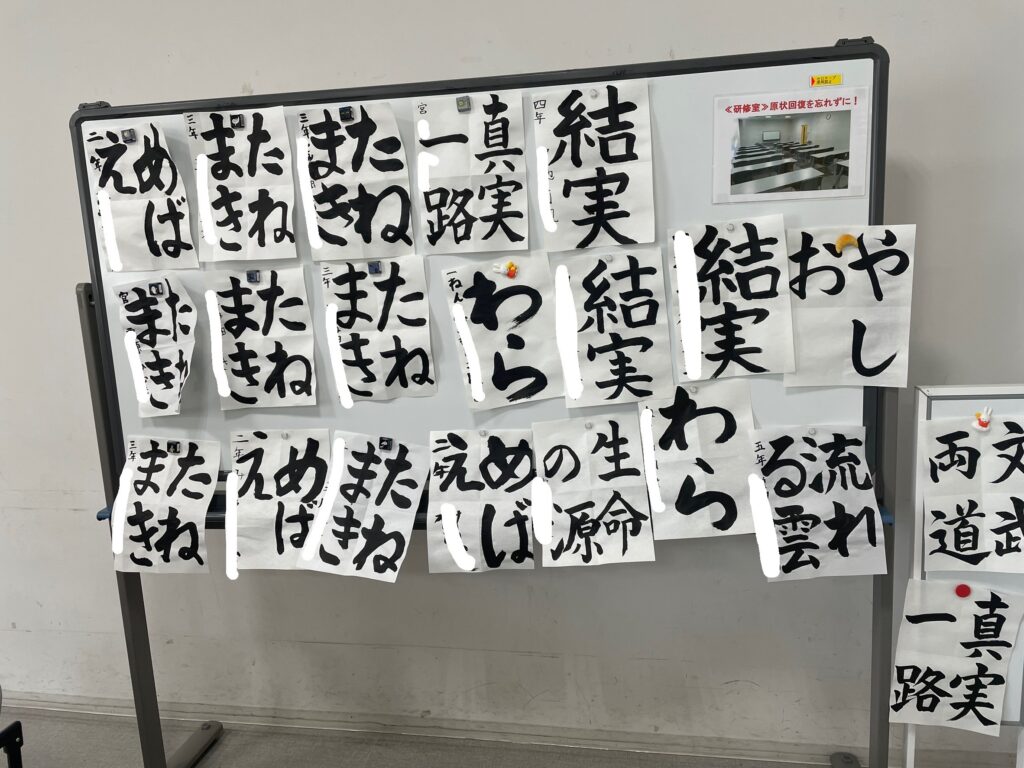 ≪研修室≫原状回復を忘れずに!
めば
え
二年
たね
まき
三年
たね
まき
三年
真実
一路
宮
結実
四年
たね
まき
たね
まき
たね
まき
三年
わら
一ねん
結実
結実
やし
お
たね
まき
三年
めば
え
二年
たね
まき
めば
え
二年
生命
の源
わら
流れ
る雲
五年
文武
両道
真実
一路